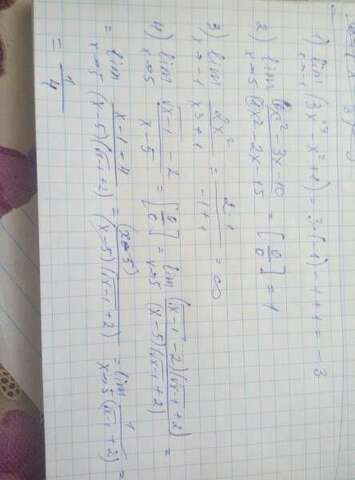 1) lim x→-1 (3x³ - x² + 1) = 3·(-1) - 1 + 1 = -3
2) lim x→5 (x² - 3x - 10)/(x² - 2x - 15) = [0/0] = 1
3) lim x→-1 2x²/(x³ + 1) = 2·1/(-1 + 1) = ∞
4) lim x→5 (√(x-1) - 2)/(x - 5) = [0/0] = lim x→5 (√(x-1) - 2)(√(x-1) + 2)/((x - 5)(√(x-1) + 2)) =
= lim x→5 (x - 1 - 4)/((x - 5)(√(x-1) + 2)) = (x - 5)/((x - 5)(√(x-1) + 2)) = lim x→5 1/(√(x-1) + 2) =
= 1/4